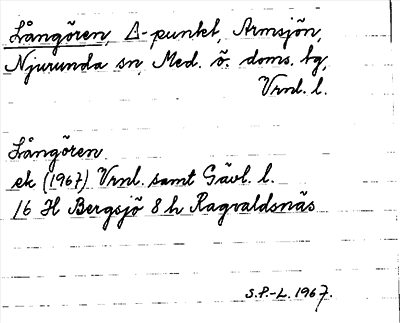 Långören, Δ-punkt, Armsjön,
Njurunda sn, Med. ö. doms. bg,
Vrnl. l.
Långören
ek (1967) Vrnl. samt Gävl. l.
16 H Bergsjö 8 h Ragvaldsnäs
S.P.-L. 1967.